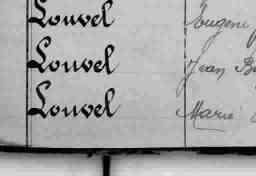 Louvel Eugène
Louvel Jean B
Louvel Marie